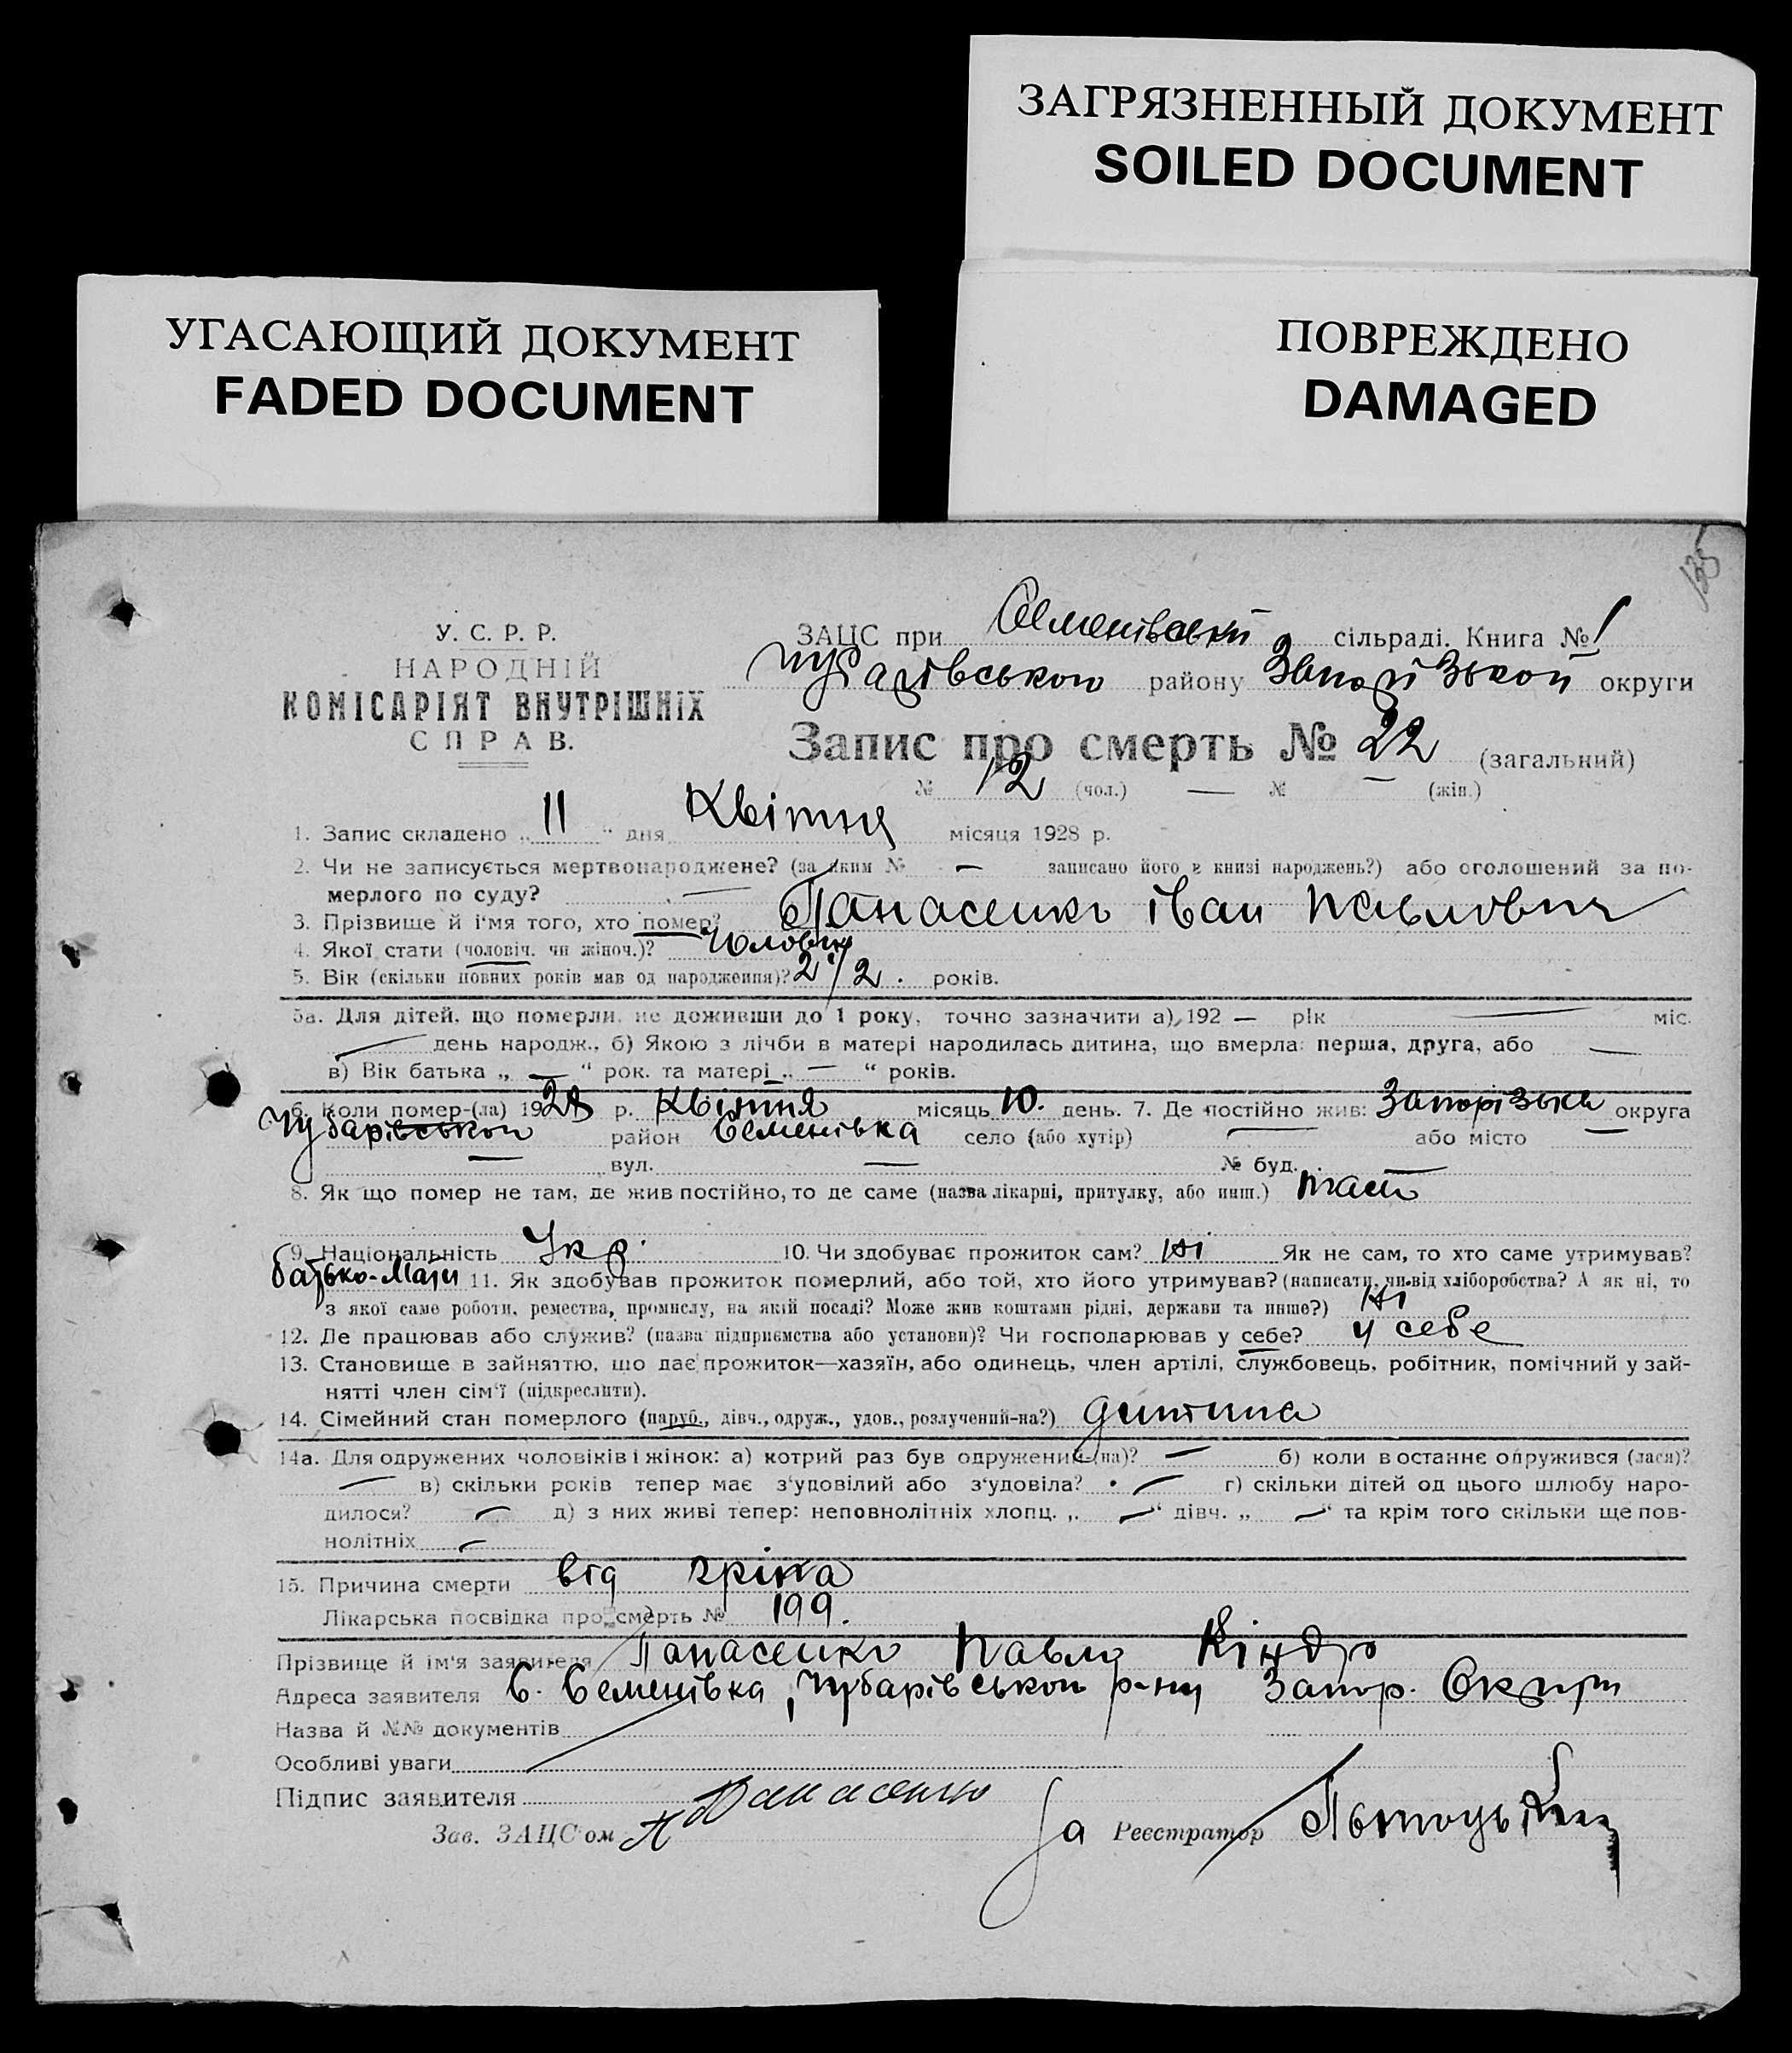 ЗАГРЯЗНЕННЫЙ ДОКУМЕНТ
SOILED DOCUMENT
УГАСАЮЩИЙ ДОКУМЕНТ
FADED DOCUMENT
ПОВРЕЖДЕНО
DAMAGED
У. С. Р. Р.
НАРОДНІЙ
КОМІСАРІЯТ ВНУТРІШНІХ
СПРАВ.
ЗАЦС при Семенівській сільраді. Книга № 1
Чубарівського району Запорізькой округи
Запис про смерть № 22 (загальний)
№ 12 (чол.) — № — (жін.)
1. Запис складено „ 11 “ дня Квітня місяця 1928 р.
2. Чи не записується мертвонароджене? (за яким № — записано його в книзі народжень?) або оголошений за по-
мерлого по суду? —
3. Прізвище й і'мя того, хто помер? Панасенко Іван Павлович
4. Якої стати (чоловіч. чи жіноч.)? Чоловіч
5. Вік (скільки повних років мав од народження)? 2 1/2. років.
5а. Для дітей, що померли, не доживши до 1 року, точно зазначити а) 192 — рік — міс.
— день народж., б) Якою з лічби в матері народилась дитина, що вмерла: перша, друга, або —
в) Вік батька „ — “ рок. та матері „ — “ років.
6. Коли помер-(ла) 1928 р. Квітня місяць 10. день. 7. Де постійно жив: Запорізька округа
Чубарівськой район Семенівка село (або хутір) — або місто —
— вул. — № буд. —
8. Як що помер не там, де жив постійно, то де саме (назва лікарні, притулку, або инш.)
9. Національність Укр. 10. Чи здобуває прожиток сам? Ні Як не сам, то хто саме утримував?
батько-Мати 11. Як здобував прожиток померлий, або той, хто його утримував? (написати, чи від хліборобства? А як ні, то
з якої саме роботи, ремества, промислу, на якій посаді? Може жив коштами рідні, держави та инше?) Ні
12. Де працював або служив? (назва підприємства або установи)? Чи господарював у себе? у себе
13. Становище в зайняттю, що дає прожиток—хазяїн, або одинець, член артілі, службовець, робітник, помічний у зай-
нятті член сім'ї (підкреслити).
14. Сімейний стан померлого (паруб., дівч., одруж., удов., розлучений-на?) дитина
14а. Для одружених чоловіків і жінок: а) котрий раз був одружений-(на)? — б) коли в останнє одружився (лася)?
— в) скільки років тепер має з'удовілий або з'удовіла? — г) скільки дітей од цього шлюбу наро-
дилося? — д) з них живі тепер: неповнолітніх хлопц. „ — “ дівч. „ — “ та крім того скільки ще пов-
нолітніх —
15. Причина смерти від гріпа
Лікарська посвідка про смерть № 199.
Прізвище й ім'я заявителя Панасенко Павло Кіндр
Адреса заявителя С. Семенівка, Чубарівськой р-ну Запор. Округи
Назва й №№ документів
Особливі уваги
Підпис заявителя Панасенко
Зав. ЗАЦС'ом За Реєстратор